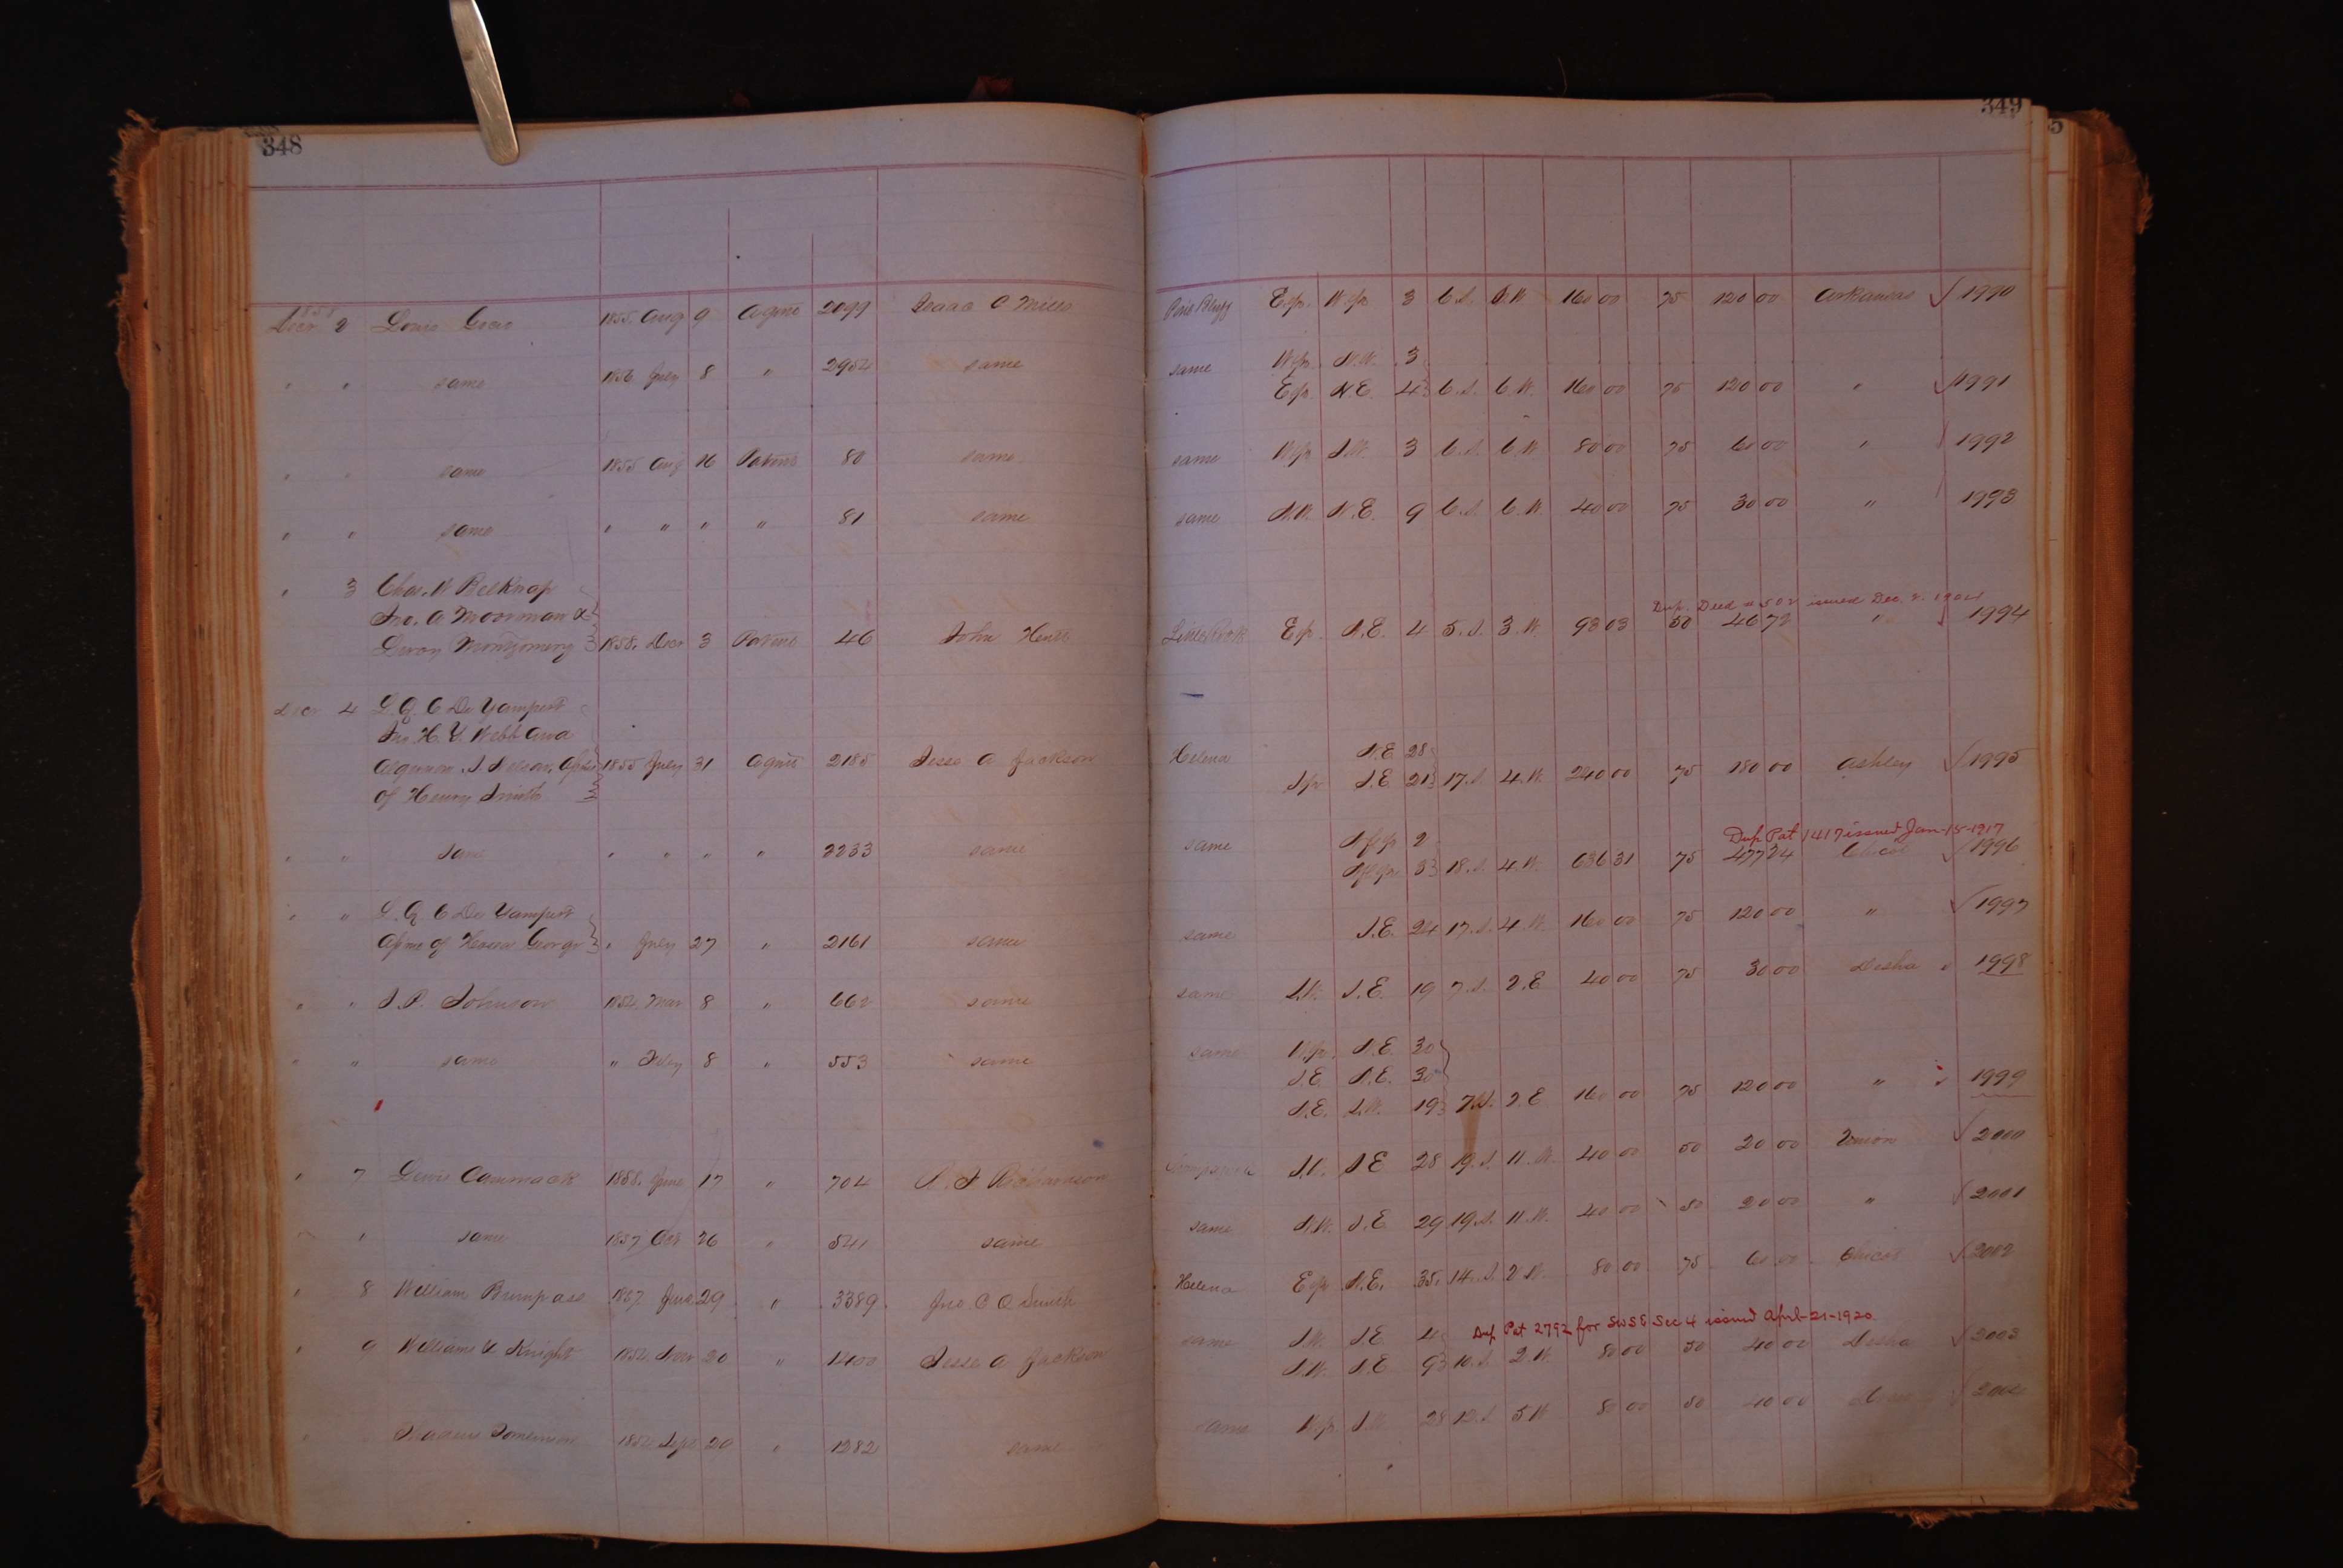 348
349
5
1858
Decr 2 Louis Gocio 1855 Aug 9 Agmt 2099 Isaac C Mills Pine Bluff E fr. W fr 3 6.S. 6.W 160 00 75 120 00 Arkansas √ 1990
" " same 1856 July 8 " 2954 same same W fr. N.W. 3
E fr. N.E. 4 6.S. 6.W. 160 00 75 120 00 " √ 1991
" " same 1855 Aug 16 Patent 80 same same W fr S.W. 3 6.S. 6.W 80 00 75 60 00 " √ 1992
" " same " " " " 81 same same N.W. N.E. 9 6.S. 6.W. 40 00 75 30 00 " 1993
" 3 Chas. W Belknap
Jno. A Moorman &
Dup. Deed # 502 issued Dec. 2. 1904
Levon Montgomery 1858. Decr 3 Patent 46 John Little Rock E fr. N.E. 4 5.S. 3.W. 93 03 50 46 72 " √ 1994
Decr 4 L. Q. C De Yampert
Jno. H. Y. Webb and
Algernon. S. Nelson, Apnees 1855 July 31 Agmt 2185 Jesse A Jackson Helena N.E. 28
of Henry Smith S fr S.E 21 17.S. 4.W. 240 00 75 180 00 Ashley √ 1995
Dup Pat 1417 issued Jan-15-1917
" " same " " " " 2233 same same 2
3 18.S. 4.W. 636 31 75 477 24 Chicot √ 1996
" " L. Q C De Yampert
Apne of Hosea George " July 27 " 2161 same same S.E. 24 17.S. 4.W. 160 00 75 120 00 " √ 1997
" " J. P. Johnson 1854. Mar 8 " 662 same same S.W. S.E. 19 7.S. 2.E 40 00 75 30 00 Desha √ 1998
" " same " Feby 8 " 553 same same W fr. N.E. 30
S.E. N.E. 30
S.E. S.W. 19 7.S. 2.E 160 00 75 120 00 " √ 1999
" 7 Lewis Cammack 1858. June 17 " 704 R. F Richardson S.E 28 19.S. 11.W. 40 00 50 20 00 Union √ 2000
" " same 1857 Oct 26 " 541 same same N.W. S.E 29 19.S. 11.W. 40 00 50 20 00 " √ 2001
" 8 William Bumpass 1857. June 29 " 3389 Jno. C O Smith Helena E fr N.E. 35. 14.S. 2.W. 80 00 75 60 00 Chicot √ 2002
Dup Pat 2792 for SWSE Sec 4 issued April-21-1920
" 9 William Knight 1854. Novr 20 " 1400 Jesse A Jackson same S.W. S.E. 4
N.W. N.E 9 10.S. 2.W. 80 00 50 40 00 Desha √ 2003
" " Tomlinson 1854 Sept 20 " 1282 same same W fr S.W. 28 12.S 5.W 80 00 50 40 00 √ 2004